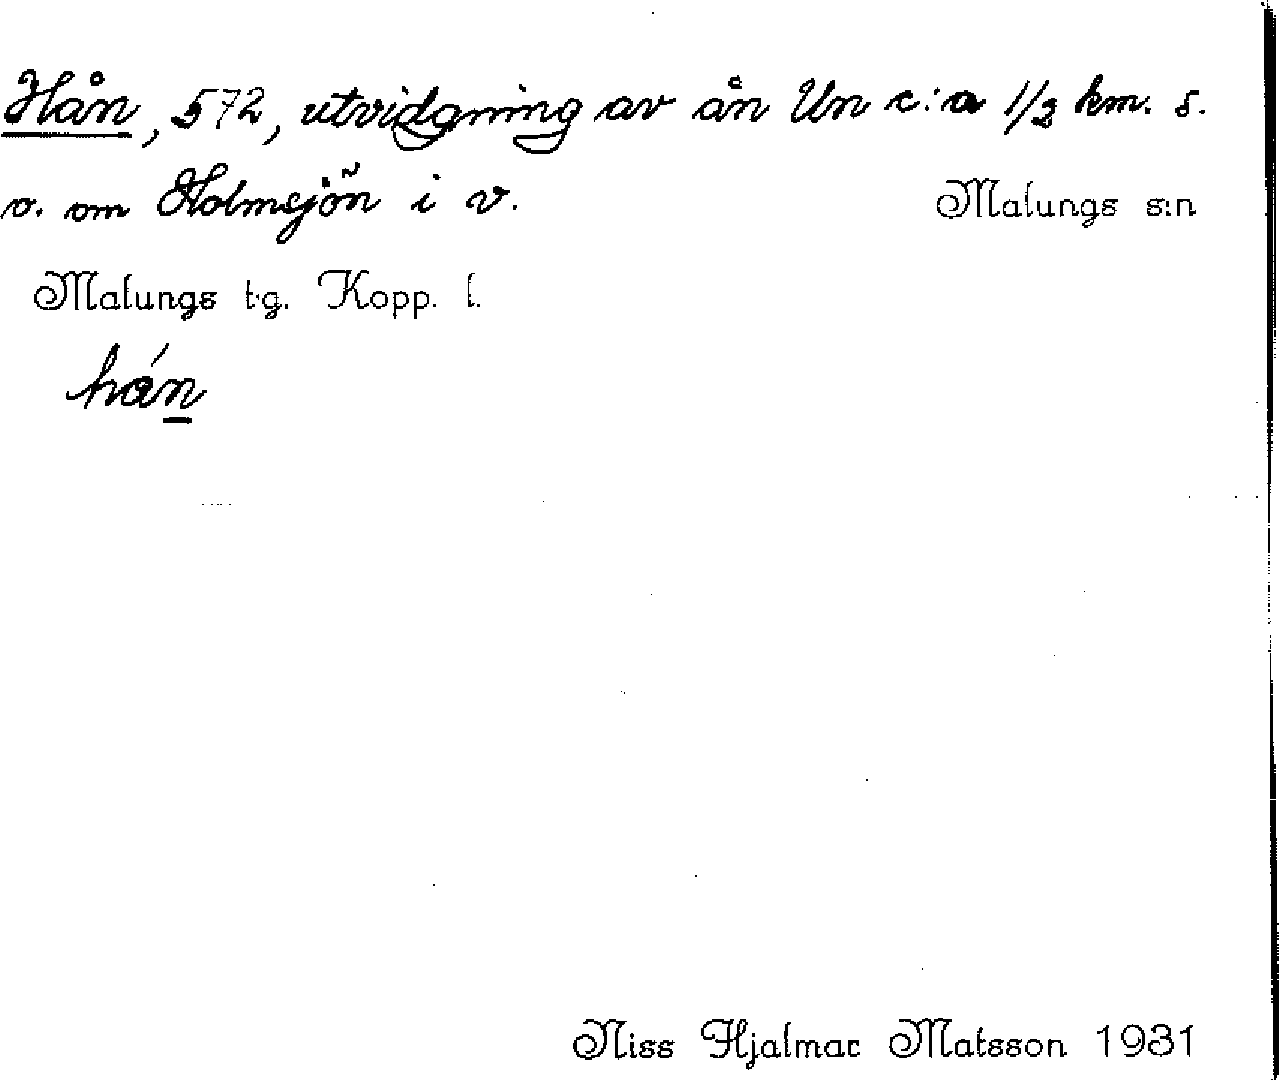 Hån, 572, utvidgning av ån Un c:a 1/2 km. s.
v. om Holmsjön i v. Malungs s:n
Malungs tg. Kopp. l.
hán
Niss Hjalmar Matsson 1931